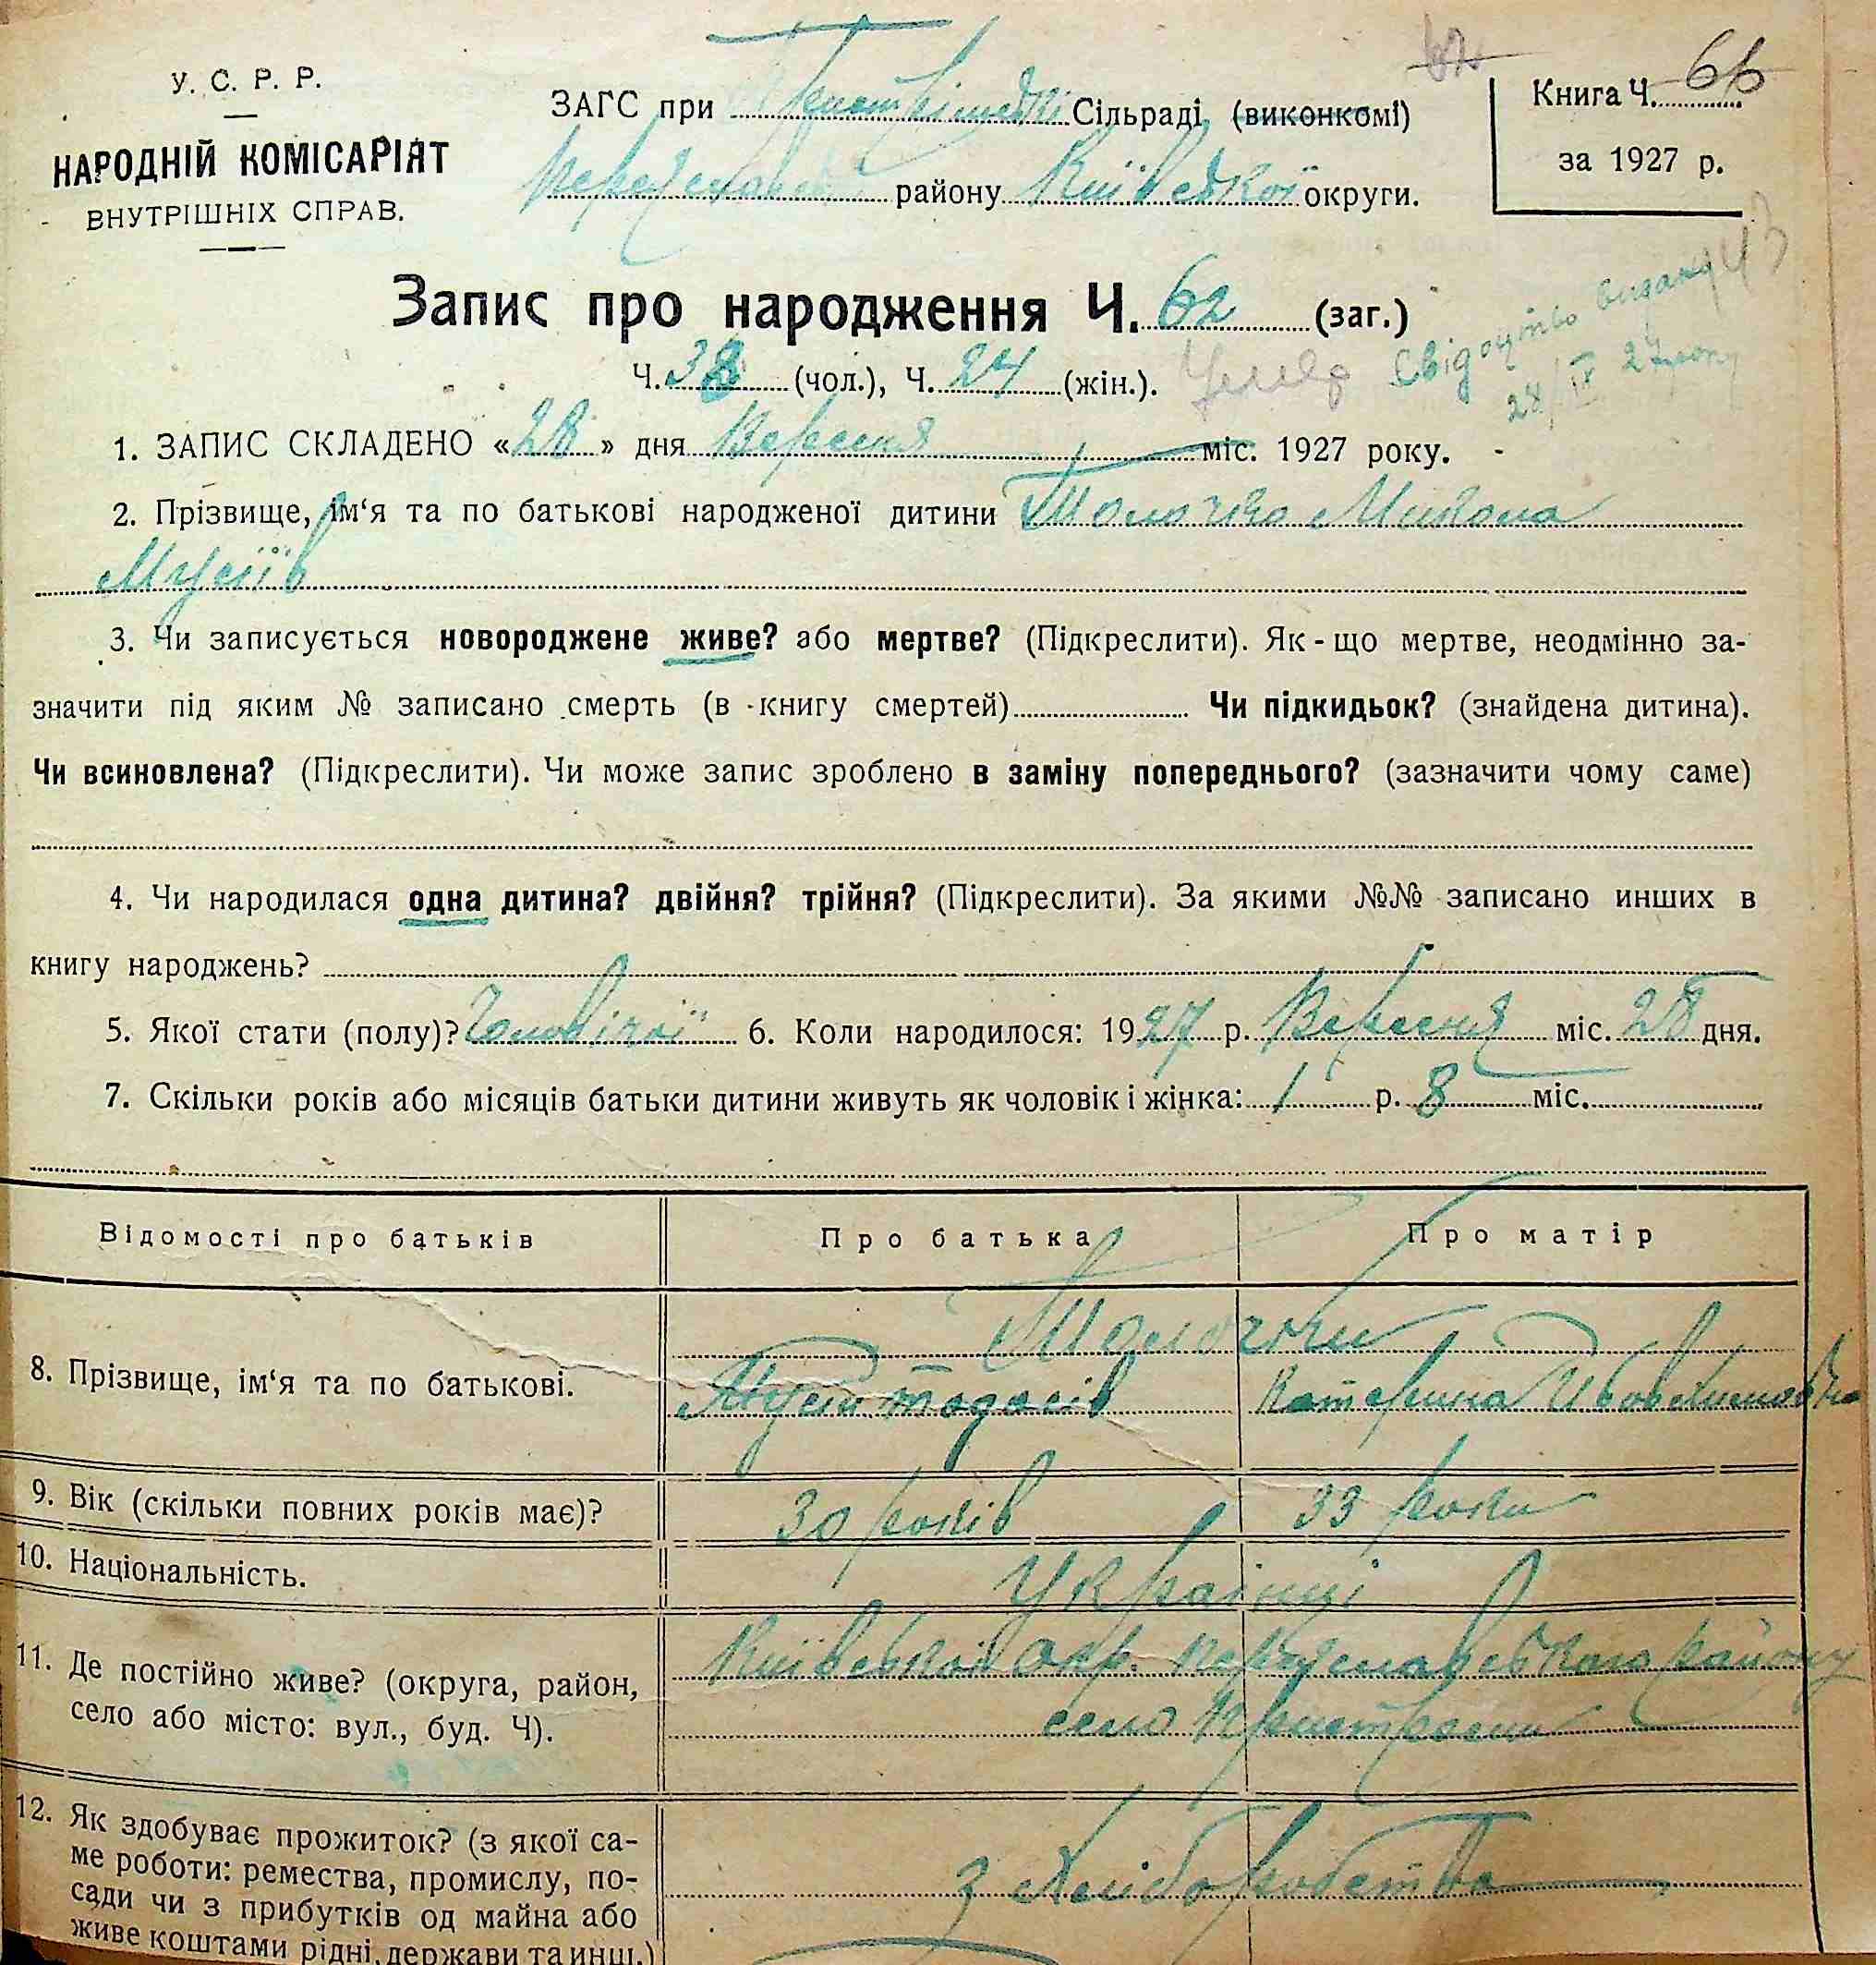 У. С. Р. Р.
НАРОДНІЙ КОМІСАРІЯТ
ВНУТРІШНІХ СПРАВ.
ЗАГС при Пристромській Сільраді (виконкомі)
району Київської округи.
Книга Ч. 66
за 1927 р.
Запис про народження Ч. 62 (заг.)
Ч. 38 (чол.), Ч. 24 (жін.).
Умер
Свідоцтво видано Ч
28/IX 27 року
1. ЗАПИС СКЛАДЕНО «28» дня Вересня міс. 1927 року.
2. Прізвище, ім‘я та по батькові народженої дитини Толочко Микола
Мусіїв
3. Чи записується новороджене живе? або мертве? (Підкреслити). Як-що мертве, неодмінно за-
значити під яким № записано смерть (в книгу смертей) Чи підкидьок? (знайдена дитина).
Чи всиновлена? (Підкреслити). Чи може запис зроблено в заміну попереднього? (зазначити чому саме)
4. Чи народилася одна дитина? двійня? трійня? (Підкреслити). За якими №№ записано инших в
книгу народжень?
5. Якої стати (полу)? Чоловічої 6. Коли народилося: 1927 р. Вересня міс. 28 дня.
7. Скільки років або місяців батьки дитини живуть як чоловік і жінка: 1 р. 8 міс.
Відомості про батьків Про батька Про матір
8. Прізвище, ім‘я та по батькові.
Толочки
Мусій Тодосів Катерина
9. Вік (скільки повних років має)? 30 років 33 роки
10. Національність. Українці
11. Де постійно живе? (округа, район,
село або місто: вул., буд. Ч).
Київської Окр. Переяславського району
село Пристроми
12. Як здобуває прожиток? (з якої са-
ме роботи: ремества, промислу, по-
сади чи з прибутків од майна або
живе коштами рідні, держави та инш.)
з Хліборобства